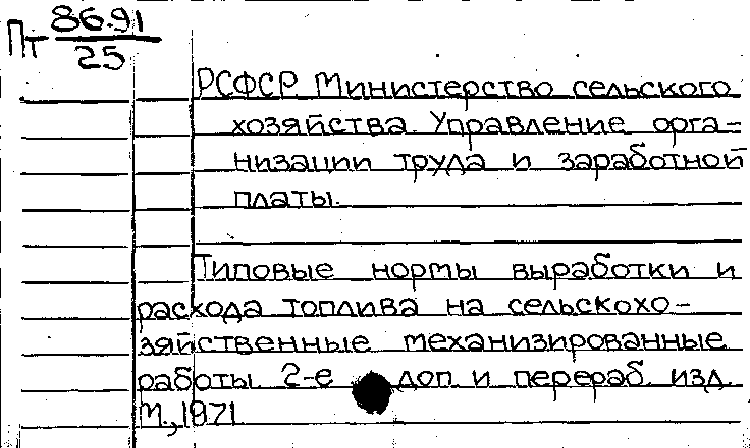 Пт 86.91
25
РСФСР Министерство сельского
хозяйства. Управление орга-
низации труда и заработной
платы.
Типовые нормы выработки и
расхода топлива на сельскохо-
зяйственные механизированные
работы. 2-е доп и перераб. изд.
М., 1971